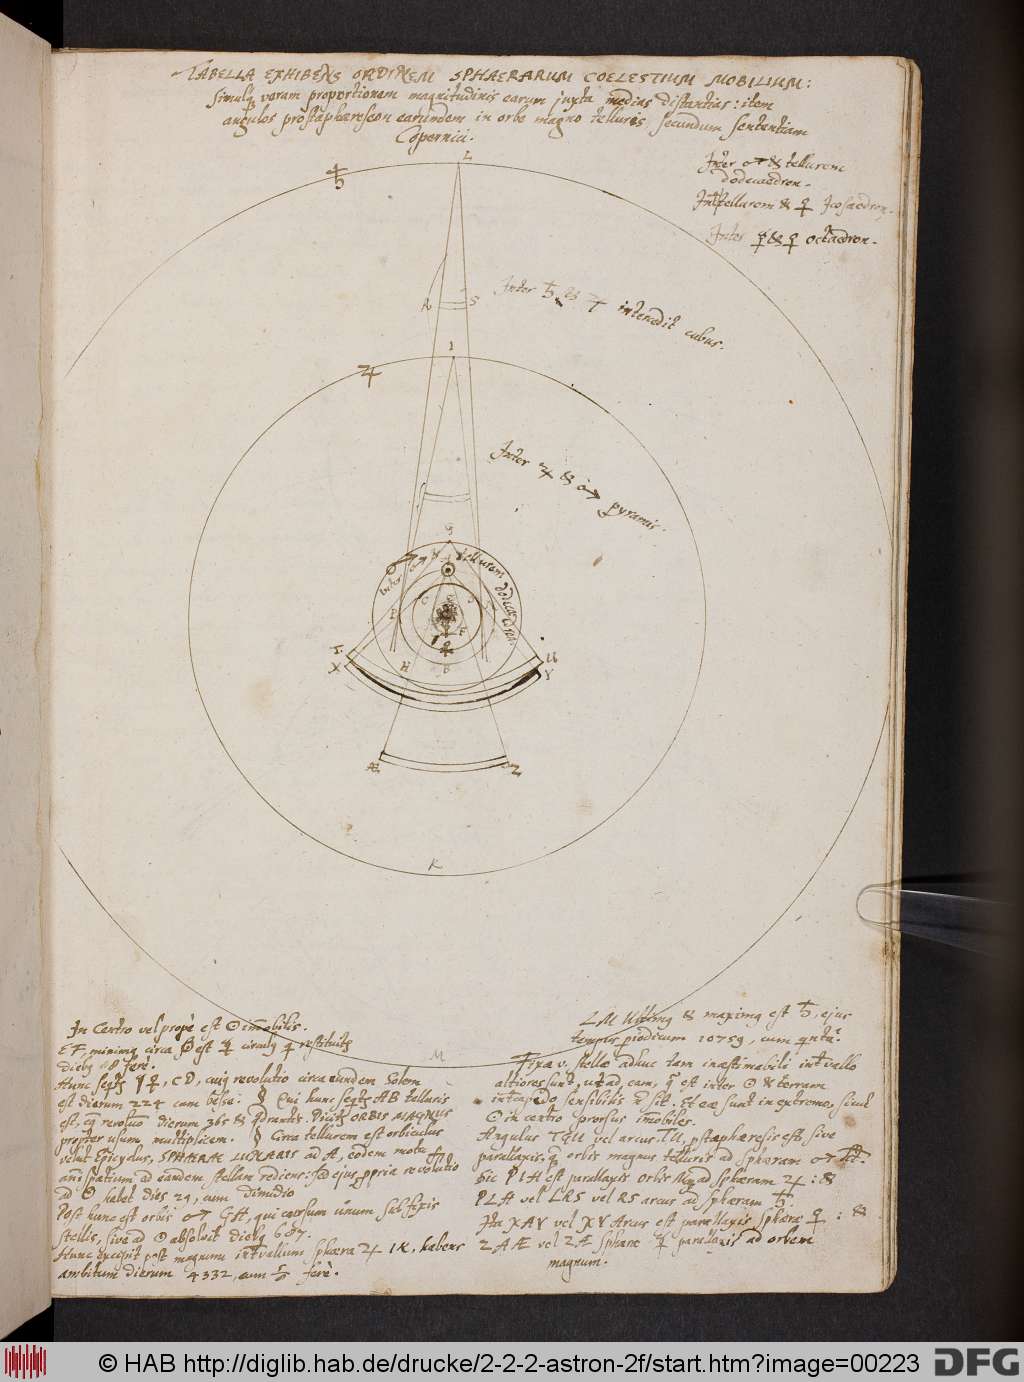 TABELLA EXHIBENS ORDINEM SPHAERARUM COELESTIUM MOBILIUM:
simulq veram proportionem magnitudinis earum juxta medias distantias: item
angulos prosthaphaereseon earundem in orbe magno telluris secundum sententiam
Copernici.
Inter ♂ & tellurem
dodecaedron.
Int tellurem & ♀ Icosaedron.
Inter ♀ & ☿ octaedron.
L
♄
R S
Inter ♄ & ♃ intercedit cubus.
I
♃
Inter ♃ & ♂ pyramis.
G
♂
inter tellurem
P
C
E
F
H B
T
X
U
Y
Æ
Z
K
M
In Centro vel prope est ☉ immobilis.
EF, minimq circa ☉ est ☿ circulq q restituitʒ
diebq 88 ferè.
Hunc seqtʒ ♀, CD, cuiq revolutio circa eundem Solem
est dierum 224 cum besse: § Qui hunc seqtʒ AB telluris
est, cuq revolutio dierum 365 & qdrantis. Dicitʒ ORBIS MAGNUS
propter usum multiplicem. § Circa tellurem est orbiculus
velut Epicyclus, SPHAERAE LUNARIS ad A, eodem motu
anni spatium ad eandem stellam rediens: Sed ejus ppria revolutio
ad ☉ habet dies 29, cum dimidio
Post hunc est orbis ♂ GH, qui cursum unum sub fixis
stellis, sive ad ☉ absolvit diebq 687.
Hunc excipit post magnum intvallum sphaera ♃ IK, habens
ambitum dierum 4332, cum ferè.
LM Ultimq & maximq est ♄, ejus
tempus piodicum 10759, cum
Fixae v. stellae adhuc tam inaestimabili intvallo
altiores sunt, ut ad eam, q est inter ☉ & terram
intcapedo sensibilis n sit. Et eae sunt in extremo, sicut
☉ in centro prorsus immobiles.
Angulus TGU vel arcus TU, pstaphaeresis est, sive
parallaxis, q orbis magnus telluris ad sphaeram ♂ hʒ.
Sic PIH est parallaxis orbis Mq ad sphaeram ♃: &
PLH vel LRS vel RS arcus ad sphaeram ♄.
Ita XAY vel XY Arcus est parallaxis sphaerae ♀: &
ZAÆ vel ZÆ sphaerae ☿ parallaxis ad orbem
magnum.
© HAB http://diglib.hab.de/drucke/2-2-2-astron-2f/start.htm?image=00223
DFG